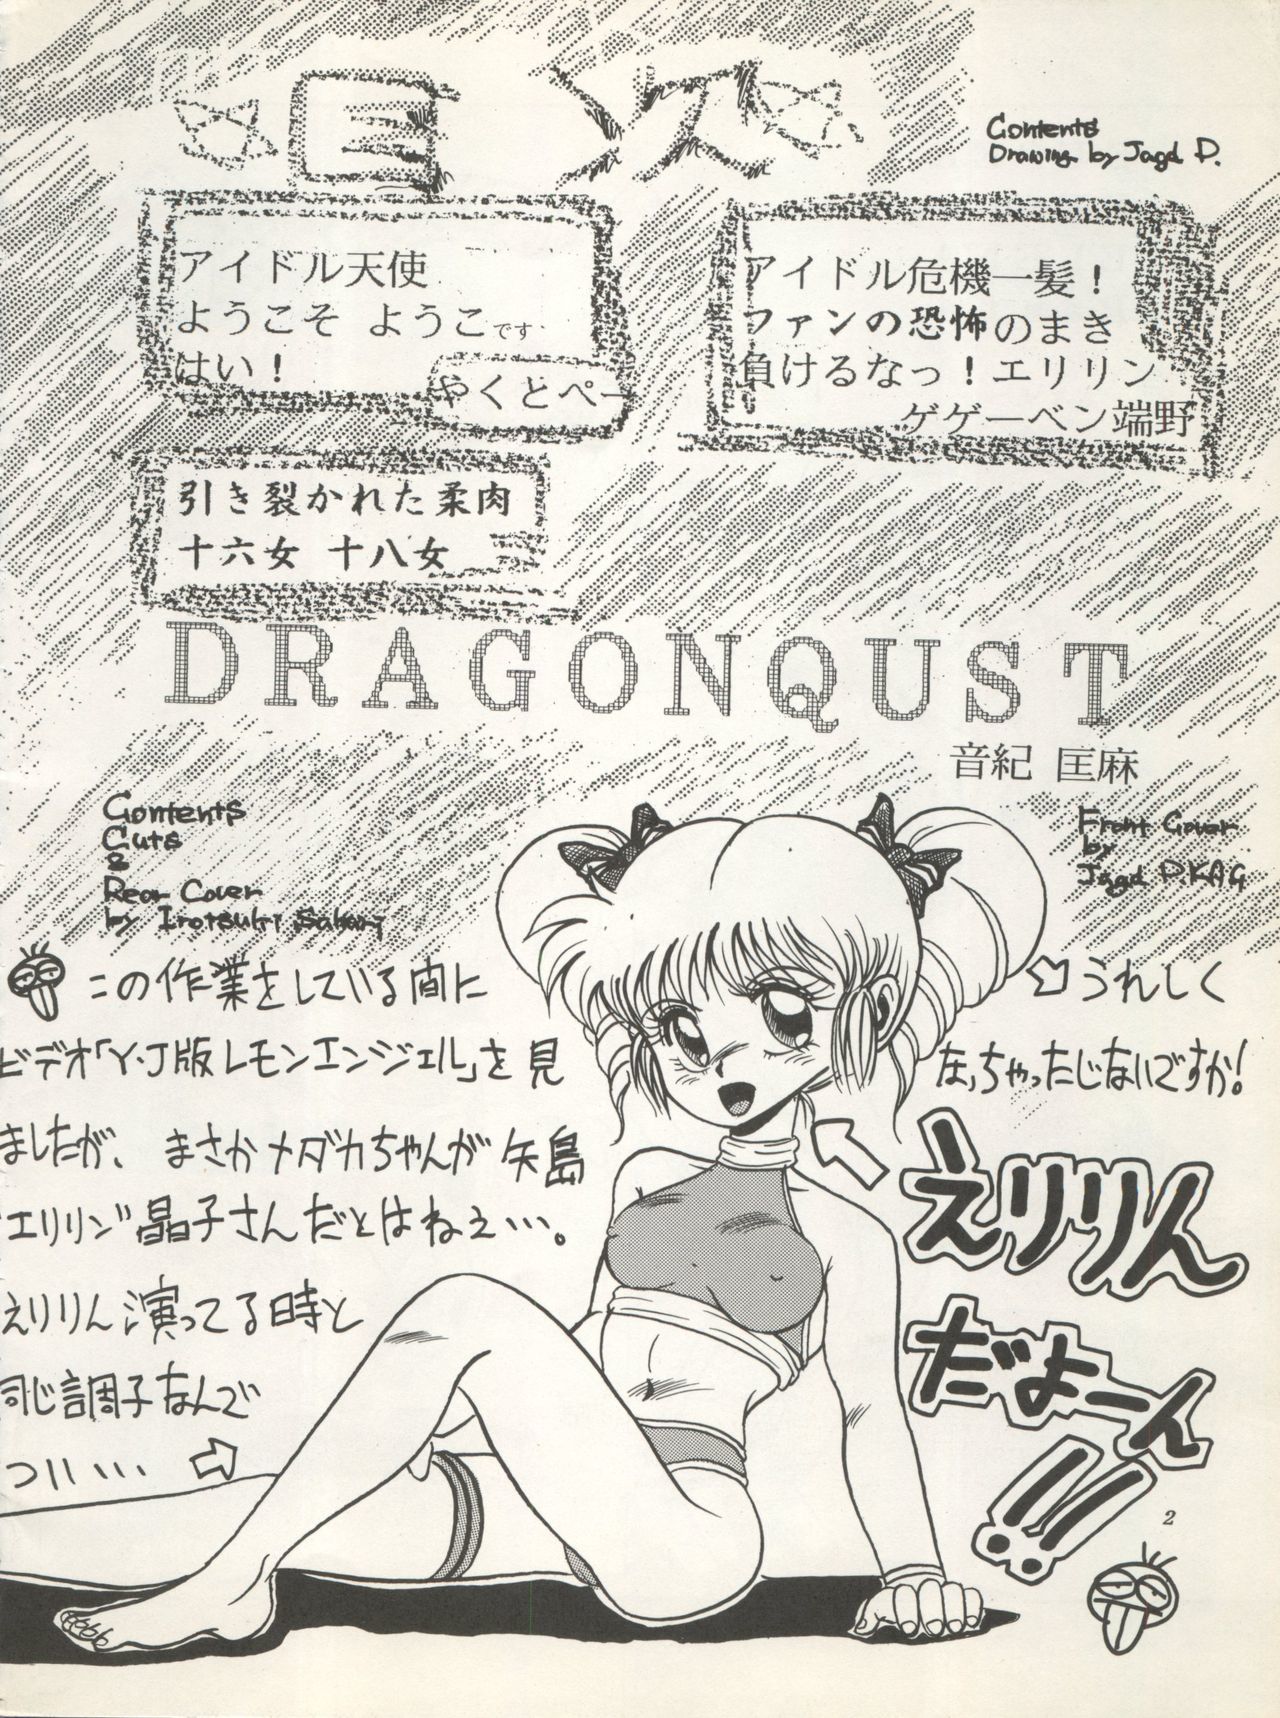 目次
Contents
Drawing by Jagd D.
アイドル天使
ようこそ ようこです
はい！
やくとぺー
アイドル危機一髪！
ファンの恐怖のまき
負けるなっ！エリリン
ゲゲーベン端野
引き裂かれた柔肉
十六女 十八女
DRAGONQUST
音紀 匡麻
Contents
Cuts
&
Rear Cover
by Irotsuki Sakari
Front Cover
by
Jagd D.KAG
この作業をしている間に
ビデオ「Y・J版レモンエンジェル」を見
ましたが、まさかメダカちゃんが矢島
"エリリン"晶子さんだとはねぇ…。
えりりん演ってる時と
同じ調子なんで
つい…
うれしく
なっちゃったじないですか！
えりりん
だよーん
!!!
2